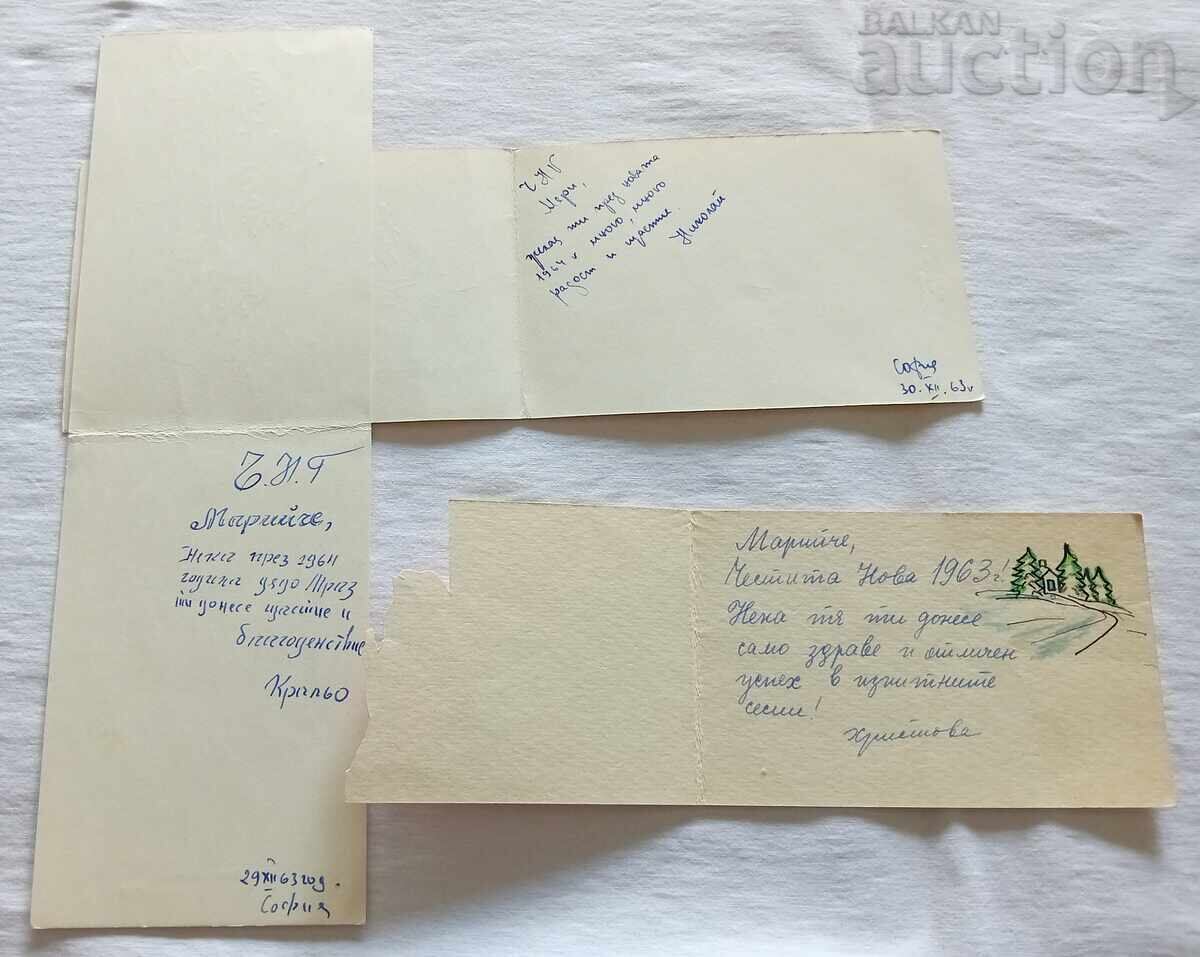 BALKAN
auction
Ч Н Г
Мери,
желая ти през новата
1964 г много, много
радост и щастие.
Николай
София
30.XII.63г
Ч.Н.Г
Марийче,
Нека през 1964
година дядо Мраз
ти донесе щастие и
благоденствие
29 XII 63 год.
София
Марийче,
Честита Нова 1963 г!
Нека тя ти донесе
само здраве и отличен
успех в изпитните
сесии!
Христова